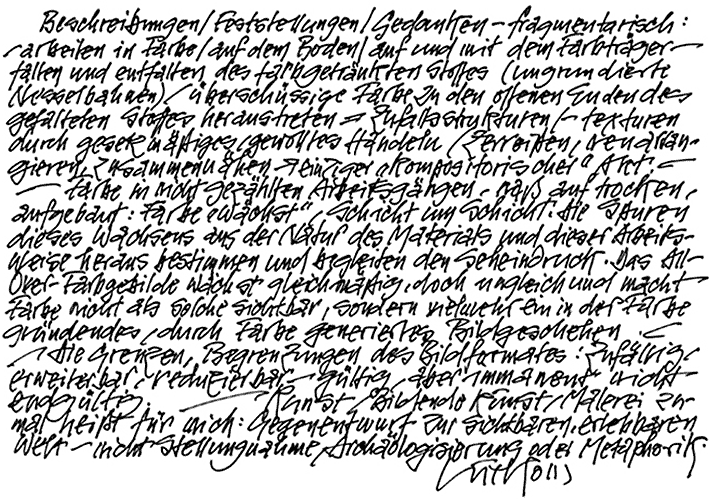 Beschreibungen/Feststellungen/Gedanken – fragmentarisch:
– arbeiten in Farbe/auf dem Boden/auf und mit dem Farbträger –
falten und entfalten des farbgetränkten Stoffes (ungrundierte
Nesselbahnen)/überschüssige Farbe in den offenen Enden des
gefalteten Stoffes heraustreten → Zufallsstrukturen/– texturen
durch gesetzmäßiges, gewolltes Handeln (Zerreißen, neu arran-
gieren, zusammennähen → einziger „kompositorischer" Akt. –
– Farbe in nicht gezählten Arbeitsgängen, naß auf trocken,
aufgebaut: Farbe „wächst", Schicht um Schicht. Die Spuren
dieses Wachsens aus der Natur des Materials und dieser Arbeits-
weise heraus bestimmen und begleiten den Seheindruck. Das All-
Over-Farbgebilde wächst gleichmäßig, doch ungleich und macht
Farbe nicht als solche sichtbar, sondern vielmehr ein in der Farbe
gründendes, durch Farbe generiertes Bildgeschehen. –
– Die Grenzen, Begrenzungen des Bildformates: zufällig,
erweiterbar, reduzierbar – gültig, aber immanent nicht
endgültig. – Kunst, Bildende Kunst, Malerei zu-
mal heißt für mich: Gegenentwurf zur sichtbaren, erlebbaren
Welt – nicht Stellungnahme, Archäologisierung oder Metaphorik.